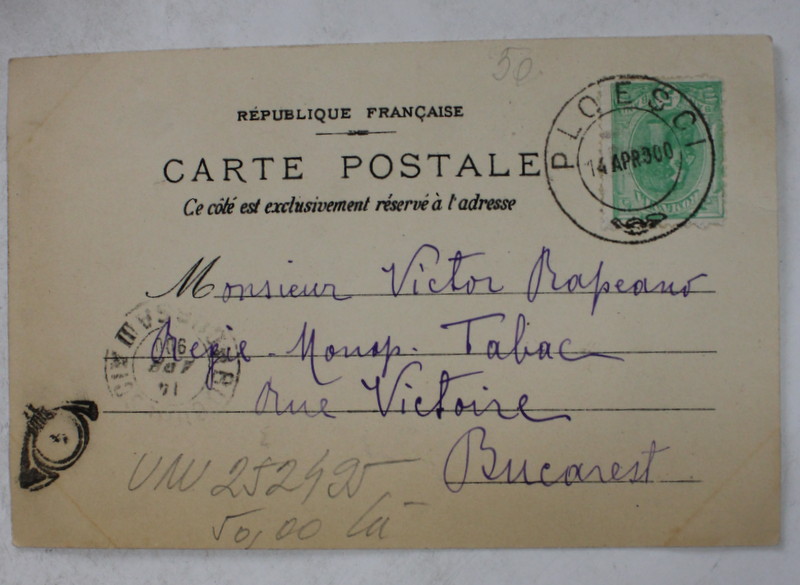 50
RÉPUBLIQUE FRANÇAISE
CARTE POSTALE
Ce côté est exclusivement réservé à l'adresse
PLOESCI
14 APR 900
Monsieur Victor Rapeanu
Regie - Monop. Tabac
Rue Victoire
Bucarest
14
APR
900
50,00 lei